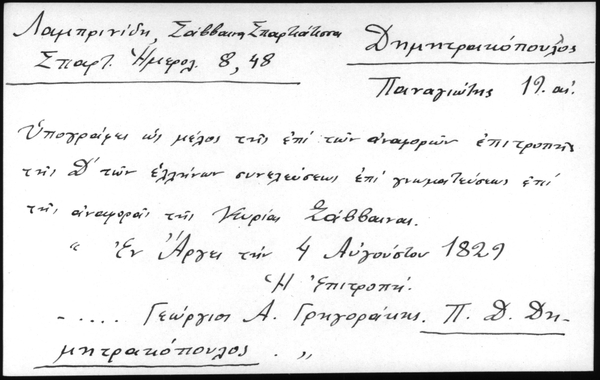 Λαμπρινίδη, Σάββαινα Σπαρτιάτισσα
Σπαρτ. Ἡμερολ. 8, 48
Δημητρακόπουλος
Παναγιώτης 19. αἰ.
Ὑπογράφει ὡς μέλος τῆς ἐπί τῶν ἀναφορῶν ἐπιτροπῆς
τῆς Δ' τῶν ἑλλήνων συνελεύσεως ἐπί γνωματεύσεως ἐπί
τῆς ἀναφορᾶς τῆς Κυρίας Σάββαινας.
" Ἐν Ἄργει τήν 4 Αὐγούστου 1829
Ἡ Ἐπιτροπή.
- .... Γεώργιος Α. Γρηγοράκης. Π. Δ. Δη-
μητρακόπουλος . "